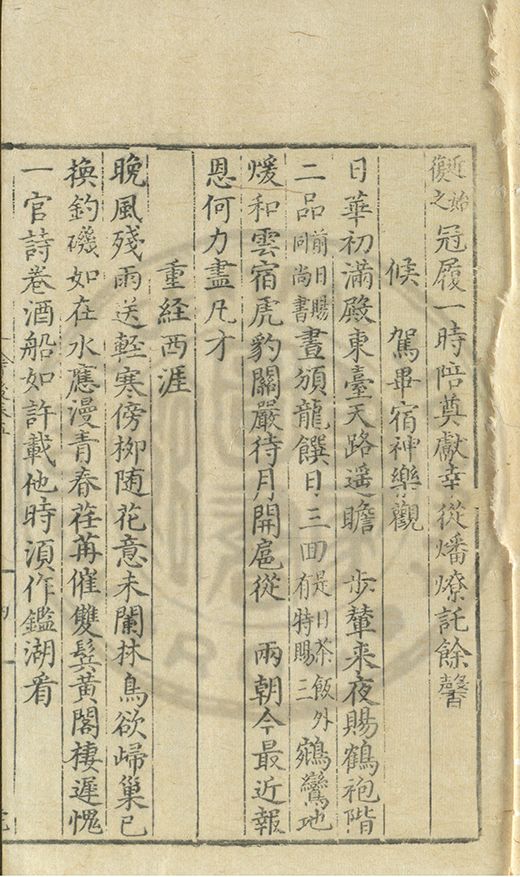 近始復之冠履一時陪奠獻幸從燔燎託餘馨
候　駕畢宿神樂觀
日華初滿殿東臺天路遥瞻　步輦来夜賜鶴袍階
二品前日賜同尚書晝頒龍饌日三囬是日茶飯外有特賜三鵷鸞地
煖和雲宿虎豹關嚴待月開扈從　兩朝今最近報
恩何力盡凡才
重経西涯
晚風殘雨送軽寒傍栁随花意未闌林鳥欲歸巢已
換釣磯如在水應漫青春荏苒催雙鬂黃閣棲遲愧
一官詩卷酒船如許載他時湏作鑑湖看